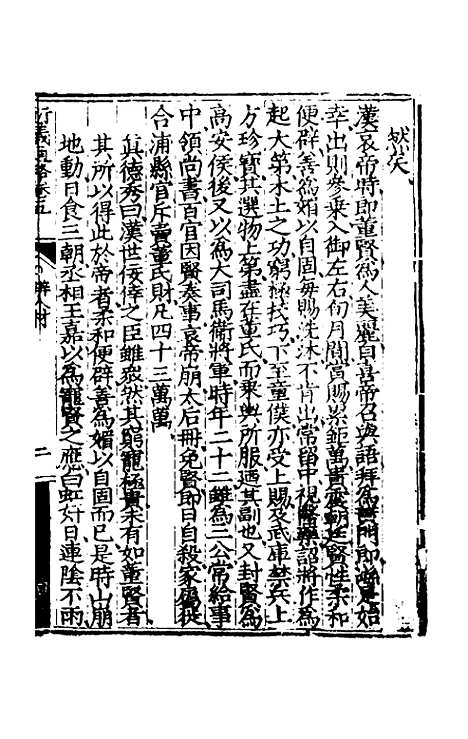 獄矣
漢哀帝時郎董賢為人美麗自喜帝召與語拜為黃門郎繇是始
幸出則參乘入御左右旬月間賞賜累鉅萬貴震朝廷賢性柔和
便辟善為媚以自固每賜洗沐不肯出常留中視醫藥詔將作為
起大第木土之功窮極技巧下至童僕亦受上賜及武庫禁兵上
方珍寶其選物上第盡在董氏而乗輿所服迺其副也又封賢為
高安侯後又以為大司馬衛將軍時年二十二雖為三公常給事
中領尚書百官因賢奏事哀帝崩太后冊免賢即日自殺家屬徙
合浦縣官斥賣董氏財凡四十三萬萬
真德秀曰漢世佞倖之臣雖衆然其窮寵極貴未有如董賢者
其所以得此於帝者柔和便辟善為媚以自固而已是時山崩
地動日食三朝丞相王嘉以為寵賢之應白虹奸日連陰不雨
衍義通略卷五
辨人材
二